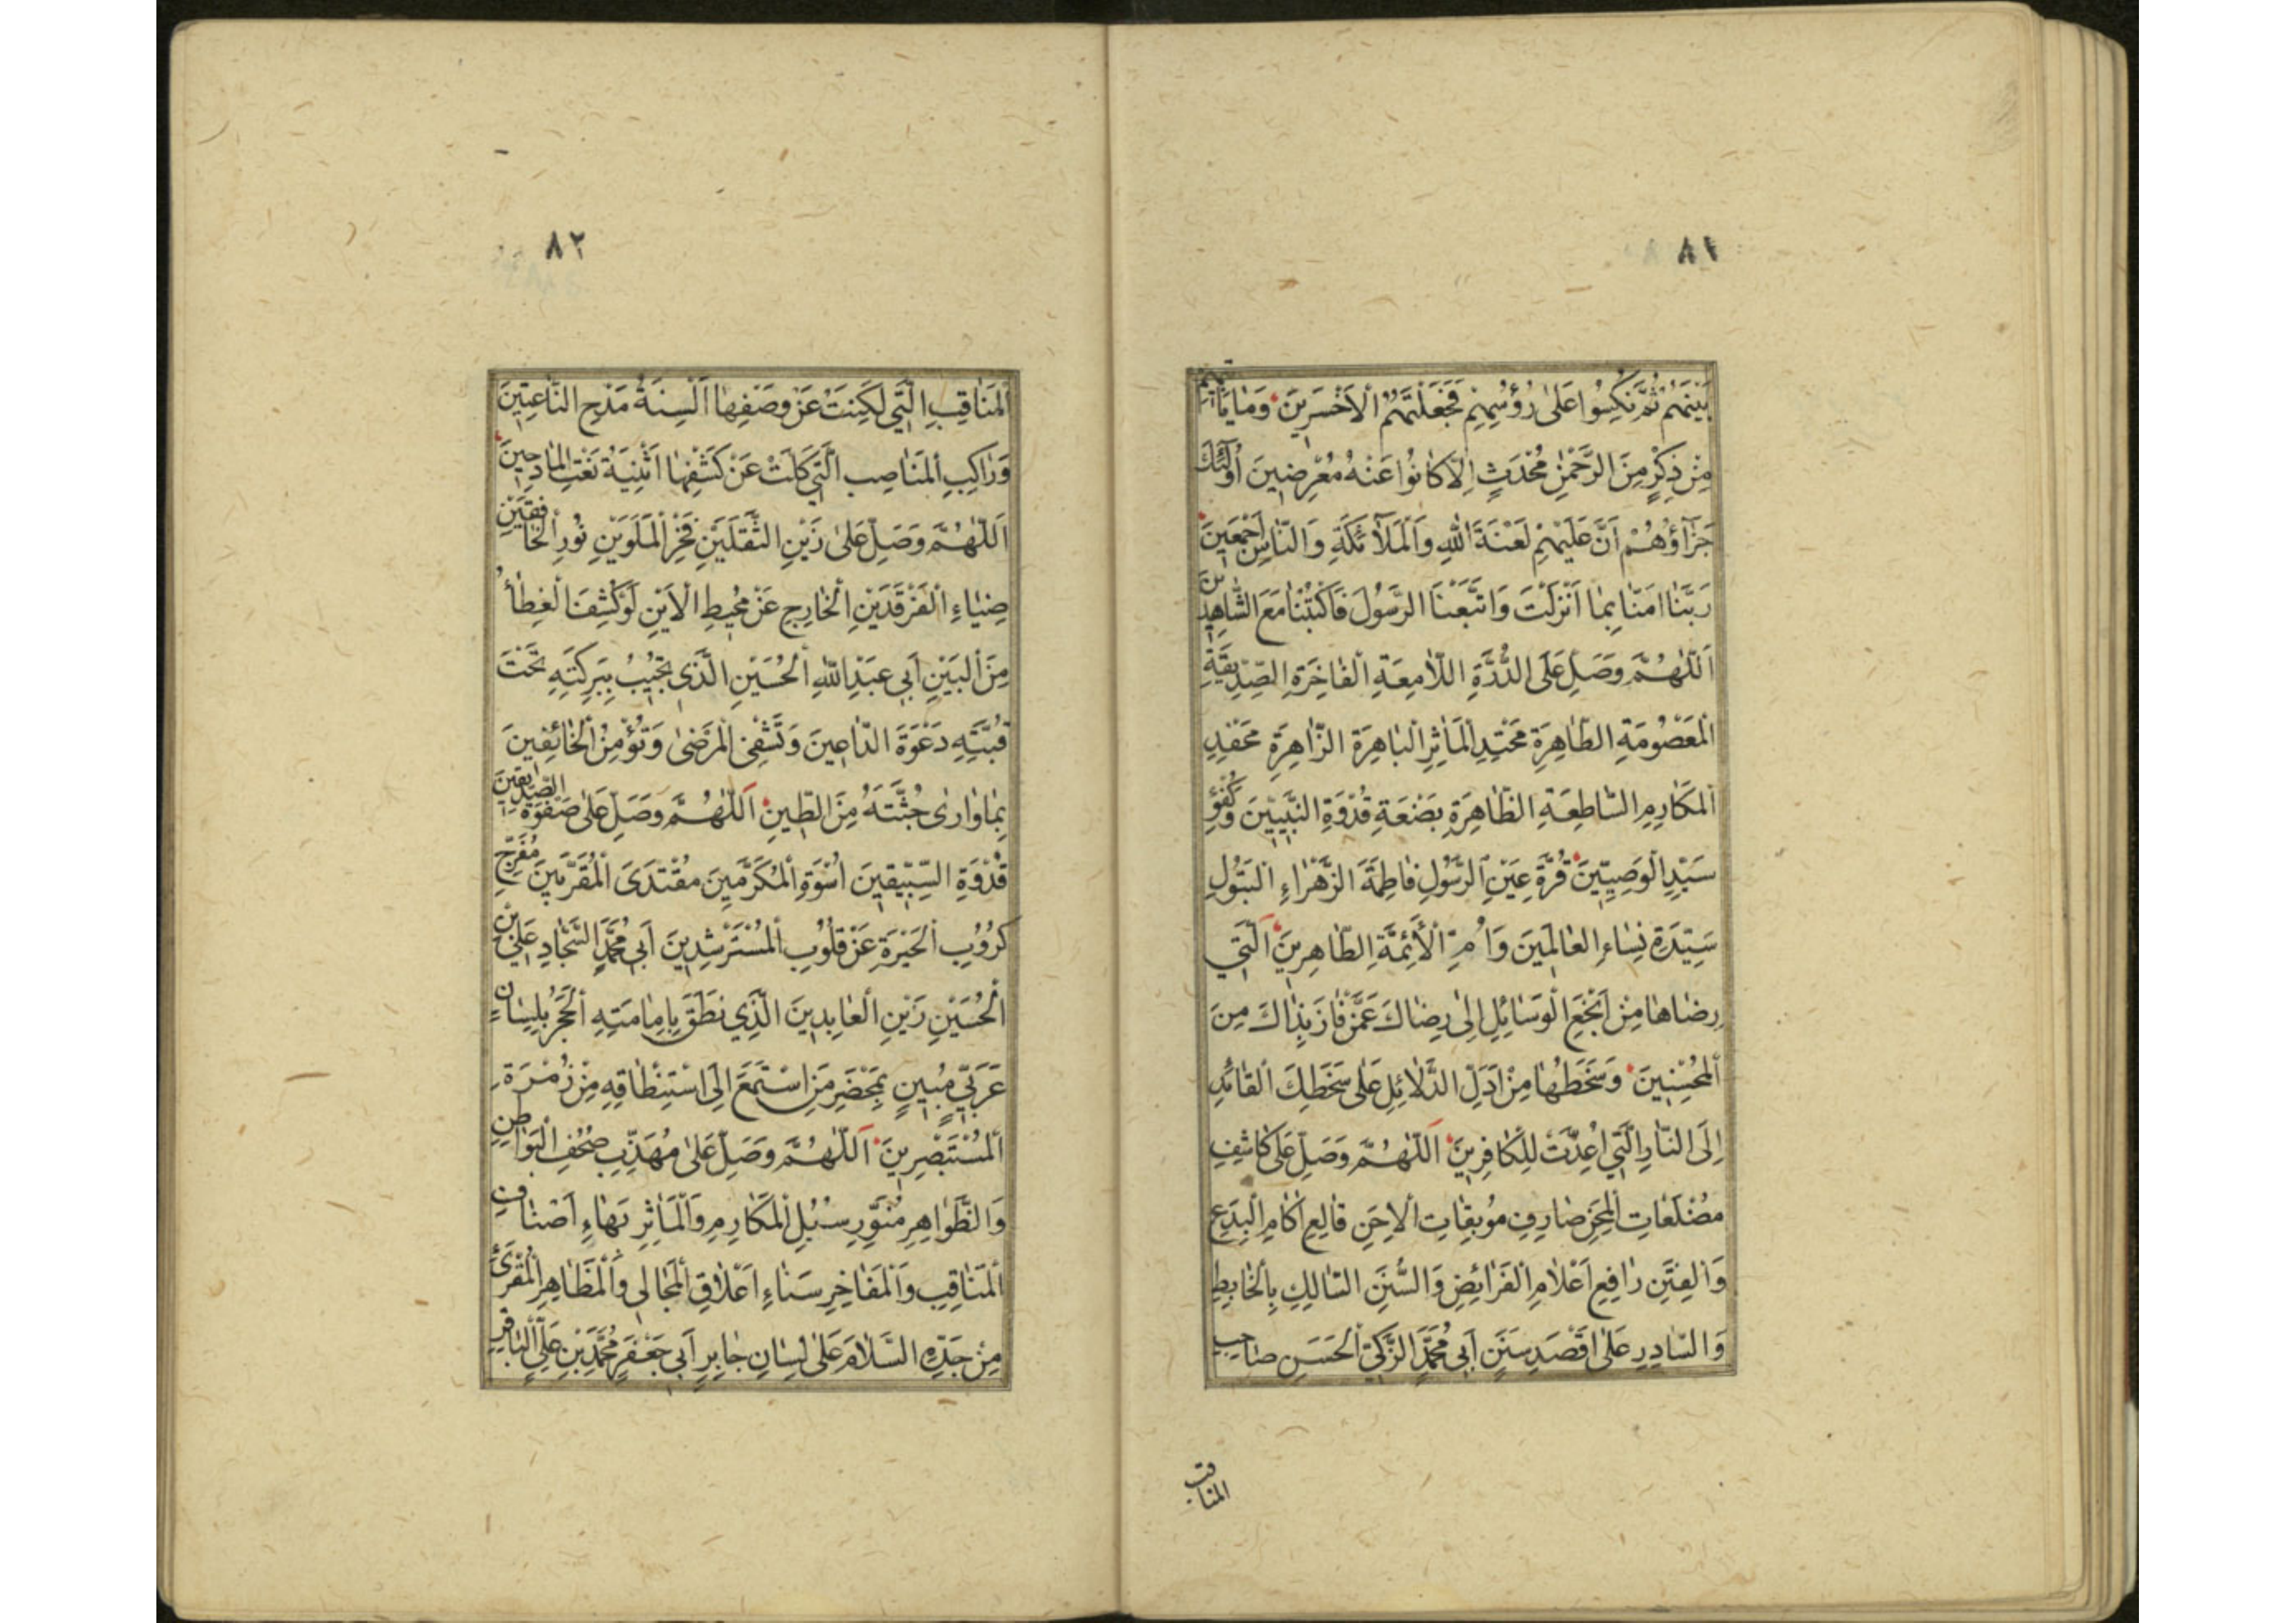 ٨١
بَيْنَهُمْ ثُمَّ نُكِسُوا عَلٰى رُؤُسِهِمْ فَجَعَلْتَهُمُ الْاَخْسَرِينَ وَمٰا يَأْتِيهِمْ
مِنْ ذِكْرٍ مِنَ الرَّحْمٰنِ مُحْدَثٍ اِلّاٰ كٰانُوا عَنْهُ مُعْرِضِينَ اُولٰٓئِكَ
جَزٰآؤُهُمْ اَنَّ عَلَيْهِمْ لَعْنَةَ اللّٰهِ وَالْمَلآٰئِكَةِ وَالنّٰاسِ اَجْمَعِينَ
رَبَّنٰا اٰمَنّٰا بِمٰا اَنْزَلْتَ وَاتَّبَعْنَا الرَّسُولَ فَاكْتُبْنٰا مَعَ الشّٰاهِدِينَ
اَللّٰهُمَّ وَصَلِّ عَلَى الدُّرَّةِ اللّاٰمِعَةِ الْفٰاخِرَةِ الصِّدِّيقَةِ
الْمَعْصُومَةِ الطّٰاهِرَةِ مَحْتِدِ الْمَاٰثِرِ الْبٰاهِرَةِ الزّٰاهِرَةِ مَحْفِدِ
الْمَكٰارِمِ السّٰاطِعَةِ الظّٰاهِرَةِ بَضْعَةِ قُدْوَةِ النَّبِيِّينَ وَكُفْوِ
سَيِّدِ الْوَصِيِّينَ قُرَّةِ عَيْنِ الرَّسُولِ فٰاطِمَةَ الزَّهْرٰاءِ الْبَتُولِ
سَيِّدَةِ نِسٰاءِ الْعٰالَمِينَ وَاُمِّ الْأَئِمَّةِ الطّٰاهِرِينَ اَلَّتِي
رِضٰاهٰا مِنْ اَنْجَعِ الْوَسٰائِلِ اِلٰى رِضٰاكَ عَمَّنْ فٰازَ بِذٰاكَ مِنَ
الْمُحْسِنِينَ وَسَخَطُهٰا مِنْ اَدَلِّ الدَّلاٰئِلِ عَلٰى سَخَطِكَ الْقٰائِدِ
اِلَى النّٰارِ الَّتِي اُعِدَّتْ لِلْكٰافِرِينَ اَللّٰهُمَّ وَصَلِّ عَلٰى كٰاشِفِ
الْمِحَنِ صٰارِفِ مُوبِقٰاتِ الْاِحَنِ قٰالِعِ اٰكٰامِ الْبِدَعِ
وَالْفِتَنِ رٰافِعِ اَعْلاٰمِ الْفَرٰائِضِ وَالسُّنَنِ السّٰالِكِ بِالْخٰابِطِ
وَالسّٰادِرِ عَلٰى اَقْصَدِ سَنَنٍ اَبِي مُحَمَّدٍ الزَّكِيِّ الْحَسَنِ صٰاحِبِ
المناقب
٨٢
الْمَنٰاقِبِ الَّتِي لَكِنَتْ عَنْ وَصْفِهٰا اَلْسِنَةُ مَدْحِ النّٰاعِتِينَ
وَرٰاكِبِ الْمَنٰاصِبِ الَّتِي كَلَّتْ عَنْ كَشْفِهٰا اَثْنِيَةُ نَعْتِ الْمٰادِحِينَ
اَللّٰهُمَّ وَصَلِّ عَلٰى زَيْنِ الثَّقَلَيْنِ فَخْرِ الْمَلَوَيْنِ نُورِ الْخٰافِقَيْنِ
ضِيٰاءِ الْفَرْقَدَيْنِ الْخٰارِجِ عَنْ مُحِيطِ الْاَيْنِ لَوْ كُشِفَ الْغِطٰاءُ
مِنَ الْبَيْنِ اَبِي عَبْدِ اللّٰهِ الْحُسَيْنِ الَّذِي تُجِيبُ بِبَرَكَتِهِ تَحْتَ
قُبَّتِهِ دَعْوَةَ الدّٰاعِينَ وَتَشْفِي الْمَرْضٰى وَتُؤْمِنُ الْخٰائِفِينَ
بِمٰا وٰارٰى جُثَّتَهُ مِنَ الطِّينِ اَللّٰهُمَّ وَصَلِّ عَلٰى صَفْوَةِ الصِّدِّيقِينَ
قُدْوَةِ السِّبِّيقِينَ اُسْوَةِ الْمُكَرَّمِينَ مُقْتَدَى الْمُقَرَّبِينَ مُفَرِّجِ
كُرُوبِ الْحَيْرَةِ عَنْ قُلُوبِ الْمُسْتَرْشِدِينَ اَبِي مُحَمَّدٍ السَّجّٰادِ عَلِيِّ بْنِ
الْحُسَيْنِ زَيْنِ الْعٰابِدِينَ الَّذِي نَطَقَ بِاِمٰامَتِهِ الْحَجَرُ بِلِسٰانٍ
عَرَبِيٍّ مُبِينٍ بِمَحْضَرِ مَنِ اسْتَمَعَ اِلَى اسْتِنْطٰاقِهِ مِنْ زُمْرَةِ
الْمُسْتَبْصِرِينَ اَللّٰهُمَّ وَصَلِّ عَلٰى مُهَذِّبِ صُحُفِ الْبَوٰاطِنِ
وَالظَّوٰاهِرِ مُنَوِّرِ سُبُلِ الْمَكٰارِمِ وَالْمَاٰثِرِ بَهٰاءِ اَصْنٰافِ
الْمَنٰاقِبِ وَالْمَفٰاخِرِ سَنٰاءِ اَعْلاٰقِ الْمَجٰالِي وَالْمَظٰاهِرِ الْمُقْرَئِ
مِنْ جَدِّهِ السَّلاٰمَ عَلٰى لِسٰانِ جٰابِرٍ اَبِي جَعْفَرٍ مُحَمَّدِ بْنِ عَلِيٍّ الْبٰاقِرِ